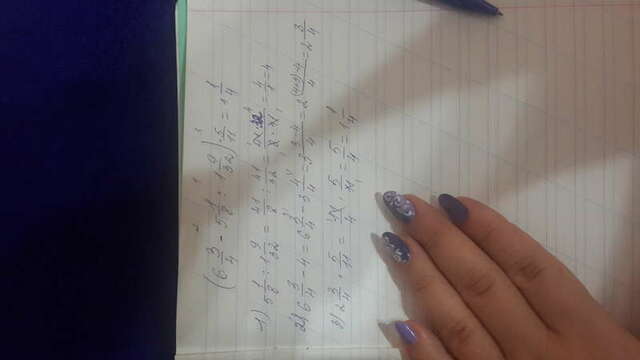 2 1 3
(6 3/4 - 5 1/8 : 1 9/32) · 5/11 = 1 1/4
1) 5 1/8 : 1 9/32 = 41/8 : 41/32 = 41 · 32 / 8 · 41 = 4/1 = 4
2) 6 3/4 - 4 = 6 3/4 - 3 4/4 = 3 3-4/4 = 2 (4+3)-4/4 = 2 3/4
3) 2 3/4 · 5/11 = 11/4 · 5/11 = 5/4 = 1 1/4